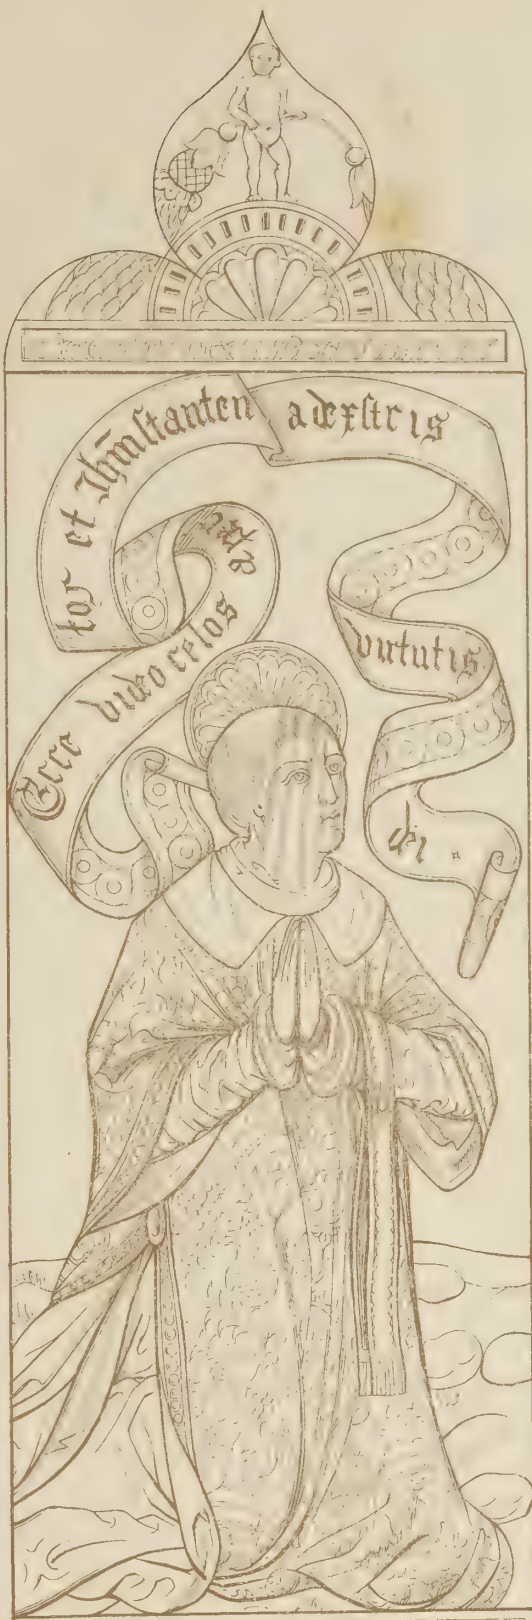 Ecce video celos ap̄
tos et Ihm̄ stantem
a dexstris
virtutis
dei